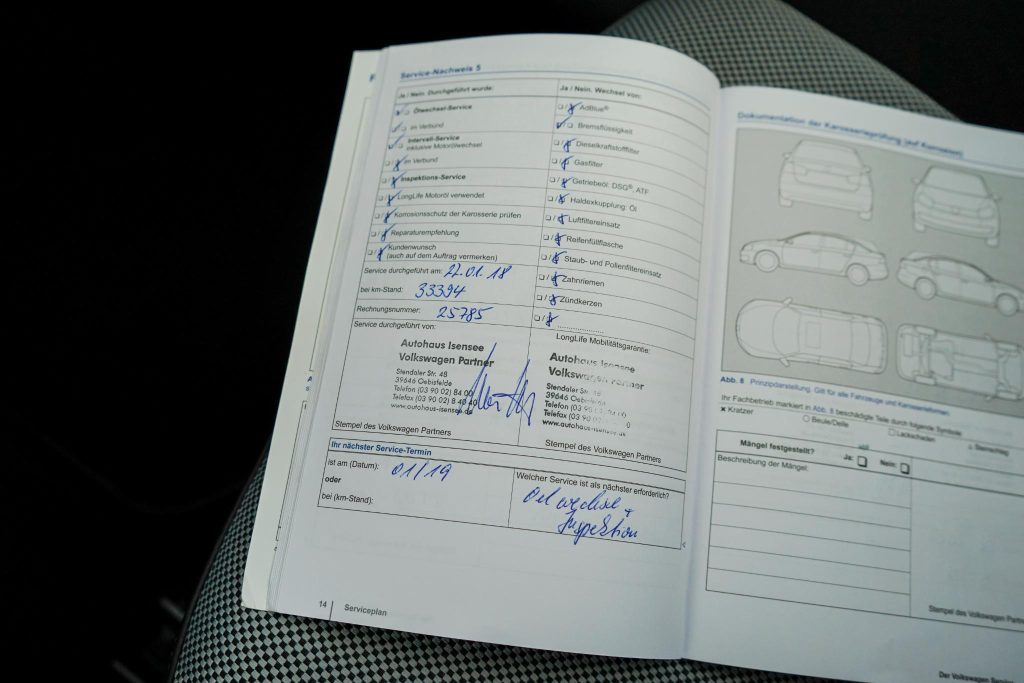 Service-Nachweis 5
Ja / Nein. Durchgeführt wurde:
Ölwechsel-Service
im Verbund
Intervall-Service
inklusive Motorölwechsel
im Verbund
Inspektions-Service
LongLife Motoröl verwendet
Korrosionsschutz der Karosserie prüfen
Reparaturempfehlung
Kundenwunsch
(auch auf dem Auftrag vermerken)
Service durchgeführt am: 22.01.18
bei km-Stand: 33394
Rechnungsnummer: 25785
Service durchgeführt von:
Autohaus Isensee
Volkswagen Partner
Stendaler Str. 48
39646 Oebisfelde
Telefon (03 90 02) 84 00
Telefax (03 90 02) 8 40 40
www.autohaus-isensee.de
Stempel des Volkswagen Partners
Ja / Nein. Wechsel von:
AdBlue®
Bremsflüssigkeit
Dieselkraftstofffilter
Gasfilter
Getriebeöl: DSG®, ATF
Haldexkupplung: Öl
Luftfiltereinsatz
Reifenfüllflasche
Staub- und Pollenfiltereinsatz
Zahnriemen
Zündkerzen
....................
LongLife Mobilitätsgarantie:
Autohaus Isensee
Volkswagen Partner
Stendaler Str. 48
39646 Oebisfelde
Telefon (03 90
Telefax (03 90
www.autohaus-isensee.de
Stempel des Volkswagen Partners
Ihr nächster Service-Termin
ist am (Datum): 01/19
oder
bei (km-Stand):
Welcher Service ist als nächster erforderlich?
Oelwechsel +
Inspektion
14 Serviceplan
Dokumentation der Karosserieprüfung (auf Korrosion)
Abb. 8 Prinzipdarstellung. Gilt für alle Fahrzeuge und Karosserieformen.
Ihr Fachbetrieb markiert in Abb. 8 beschädigte Teile durch folgende Symbole:
Kratzer Beule/Delle Lackschaden Steinschlag
Mängel festgestellt? Ja: Nein:
Beschreibung der Mängel:
Stempel des Volkswagen Partn
Der Volkswagen Service